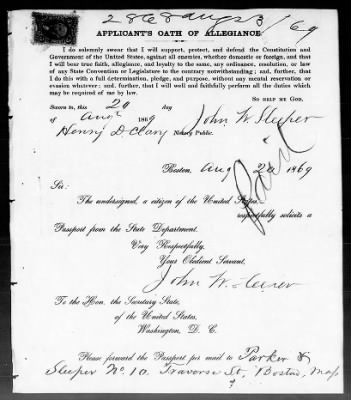 APPLICANT'S OATH OF ALLEGIANCE.
I do solemnly swear that I will support, protect, and defend the Constitution and
Government of the United States, against all enemies, whether domestic or foreign, and that
I will bear true faith, allegiance, and loyalty to the same, any ordinance, resolution, or law
of any State Convention or Legislature to the contrary notwithstanding; and, further, that
I do this with a full determination, pledge, and purpose, without any mental reservation or
evasion whatever: and, further, that I will well and faithfully perform all the duties which
may be required of me by law.
SO HELP ME GOD.
Sworn to, this 20 day
of Augt 1869 John W. Sleeper
Henry D Clary Notary Public.
Boston, Aug 20 1869
Sir:
Paid
The undersigned, a citizen of the United States,
respectfully solicits a
Passport from the State Department.
Very Respectfully,
Your Obedient Servant,
John W. Sleeper
To the Hon. the Secretary State,
of the United States,
Washington, D. C.
Please forward the Passport per mail to Parker &
Sleeper No. 10 Traverse St, Boston, Mass